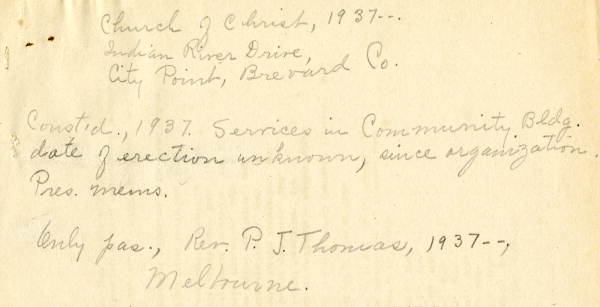 Church of Christ, 1937--.
Indian River Drive,
City Point, Brevard Co.
Const'd., 1937. Services in Community Bldg.
date of erection unknown, since organization.
Pres. mems.
Only pas., Rev. P. J. Thomas, 1937--,
Melbourne.